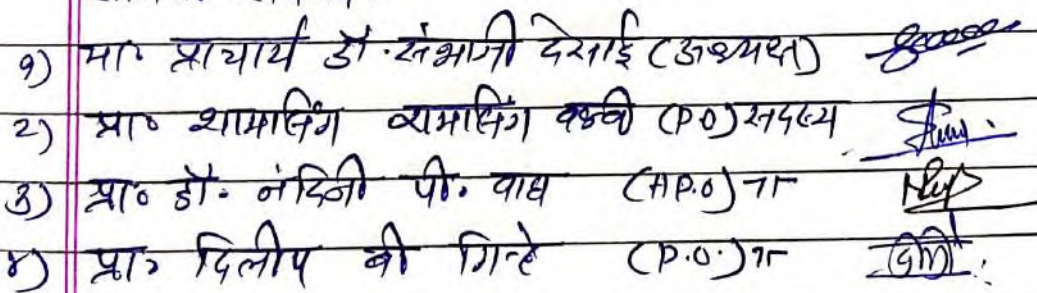 १) मा॰ प्राचार्य डॉ. संभाजी देसाई (अध्यक्ष)
२) प्रा॰ शामसिंग वळवी (P.O) सदस्य
३) प्रा॰ डॉ. नंदिनी पी. वाघ (AP.O) "
४) प्रा॰ दिलीप बी गिऱ्हे (P.O.) "